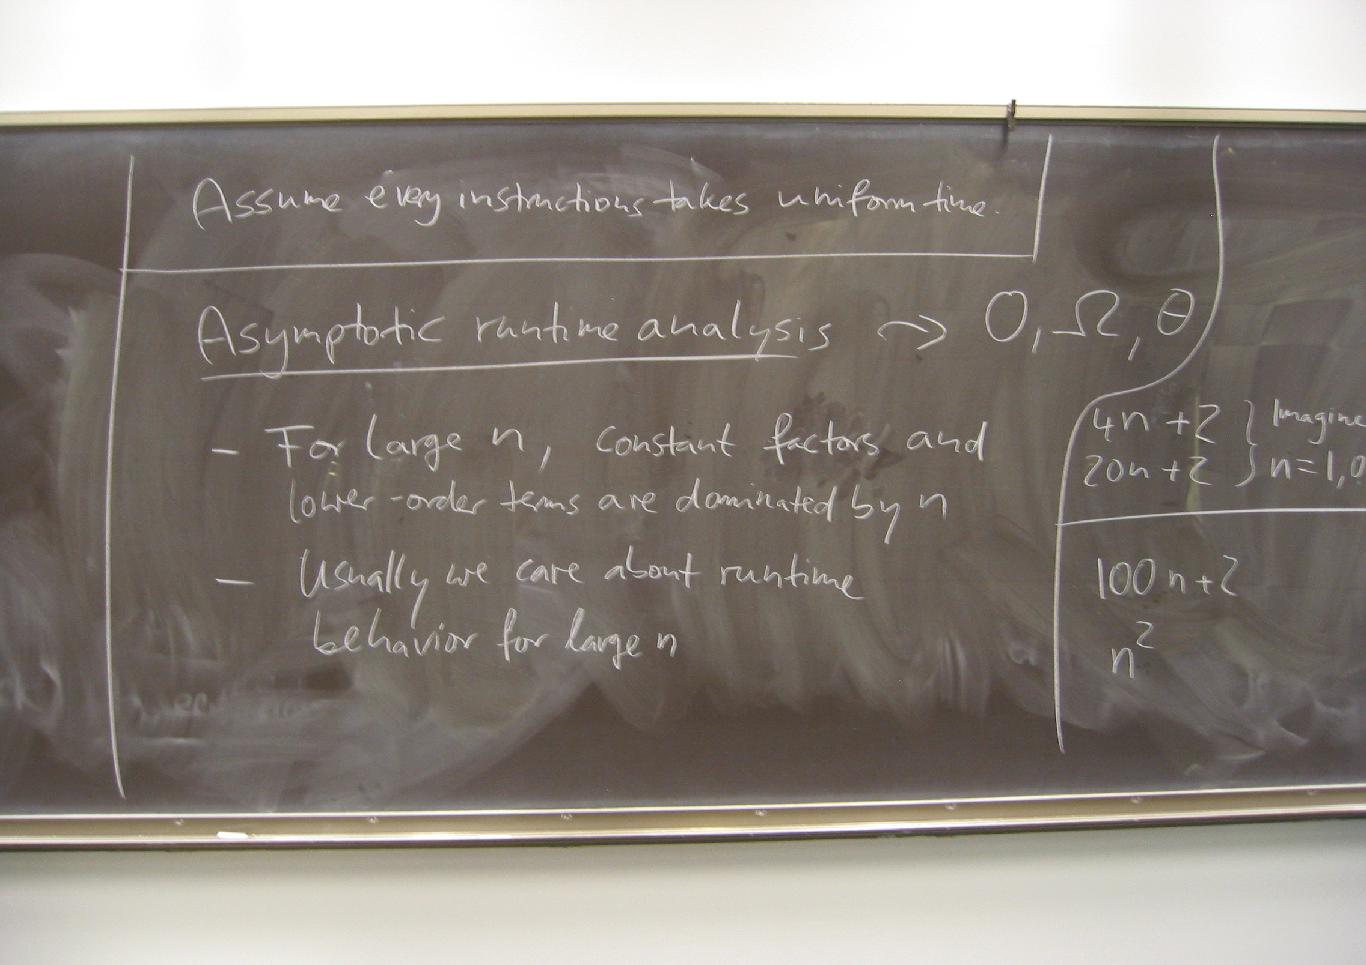 Assume every instructions takes uniform time.
Asymptotic runtime analysis → O, Ω, Θ
- For large n, constant factors and
lower-order terms are dominated by n
- Usually we care about runtime
behavior for large n
4n + 2 } Imagine
20n + 2 } n = 1,0
100n + 2
n²